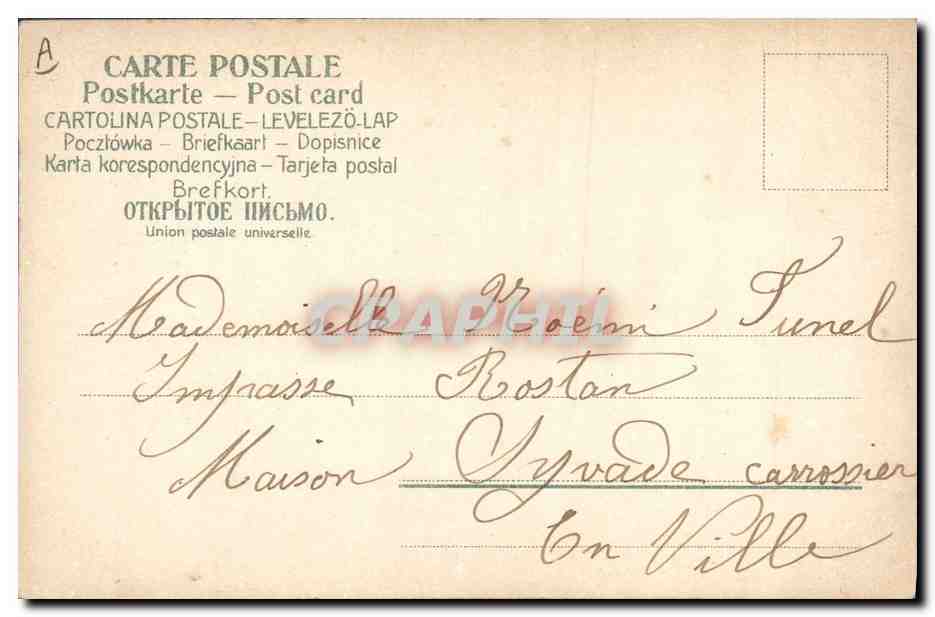 A
CARTE POSTALE
Postkarte — Post card
CARTOLINA POSTALE — LEVELEZÖ-LAP
Pocztówka — Briefkaart — Dopisnice
Karta korespondencyjna — Tarjeta postal
Brefkort.
ОТКРЫТОЕ ПИСЬМО.
Union postale universelle
CPAPHIL
Mademoiselle Noémi Tunel
Impasse Rostan
Maison Syvade carrossier
En Ville